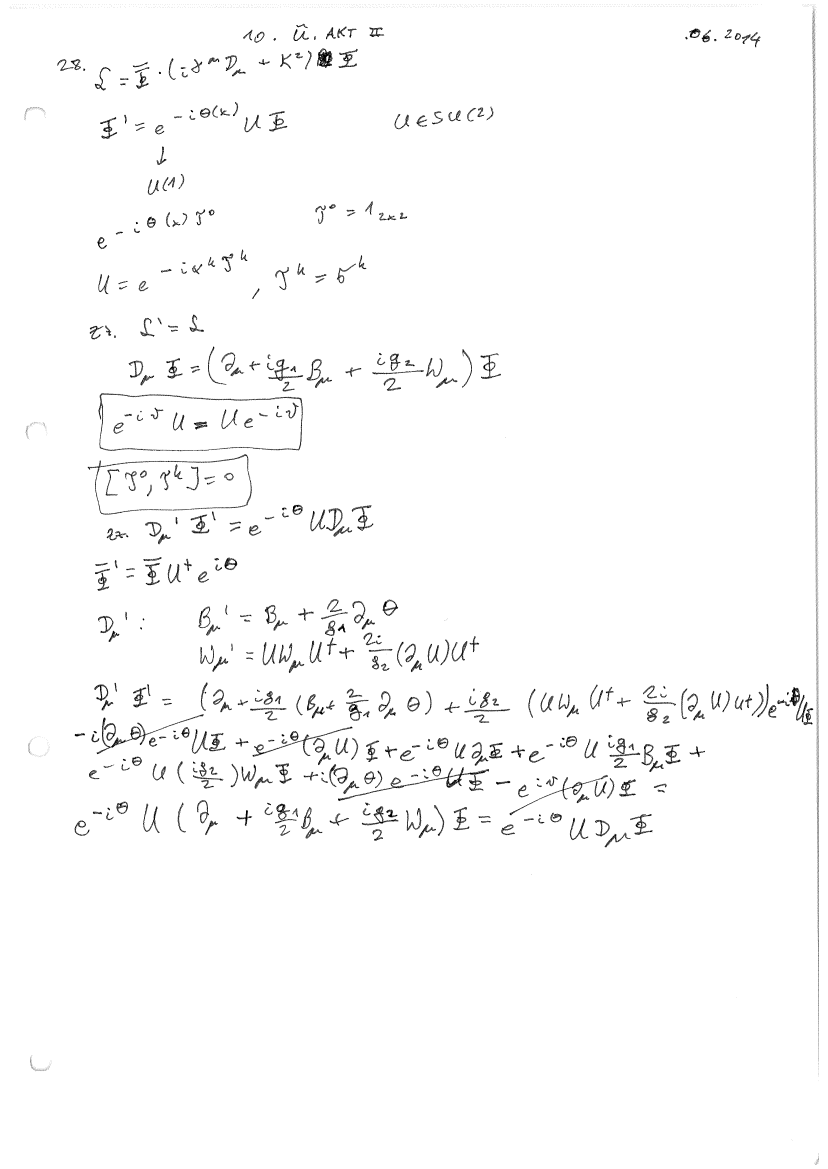 10. Ü. AKT II .06.2014
28. ℒ = Φ̄ · (i γ^m D_μ + K²) Φ
Φ' = e^{-iθ(x)} U Φ U ∈ SU(2)
↓
U(1)
e^{-iθ(x)T⁰} T⁰ = 1_{2x2}
U = e^{-iα^k T^k}, T^k = σ^k
zz. ℒ' = ℒ
D_μ Φ = (∂_μ + ig₁/2 B_μ + ig₂/2 W_μ) Φ
e^{-iϑ} U = U e^{-iϑ}
[T⁰, T^k] = 0
zz. D_μ' Φ' = e^{-iθ} U D_μ Φ
Φ̄' = Φ̄ U† e^{iθ}
D_μ' : B_μ' = B_μ + 2/g₁ ∂_μ θ
W_μ' = U W_μ U† + 2i/g₂ (∂_μ U) U†
D_μ' Φ' = (∂_μ + ig₁/2 (B_μ + 2/g₁ ∂_μ θ) + ig₂/2 (U W_μ U† + 2i/g₂ (∂_μ U) U†)) e^{-iθ} U Φ
-i(∂_μ θ) e^{-iθ} U Φ + e^{-iθ} (∂_μ U) Φ + e^{-iθ} U ∂_μ Φ + e^{-iθ} U ig₁/2 B_μ Φ +
e^{-iθ} U (ig₂/2) W_μ Φ + i(∂_μ θ) e^{-iθ} U Φ - e^{iϑ} (∂_μ U) Φ =
e^{-iθ} U (∂_μ + ig₁/2 B_μ + ig₂/2 W_μ) Φ = e^{-iθ} U D_μ Φ